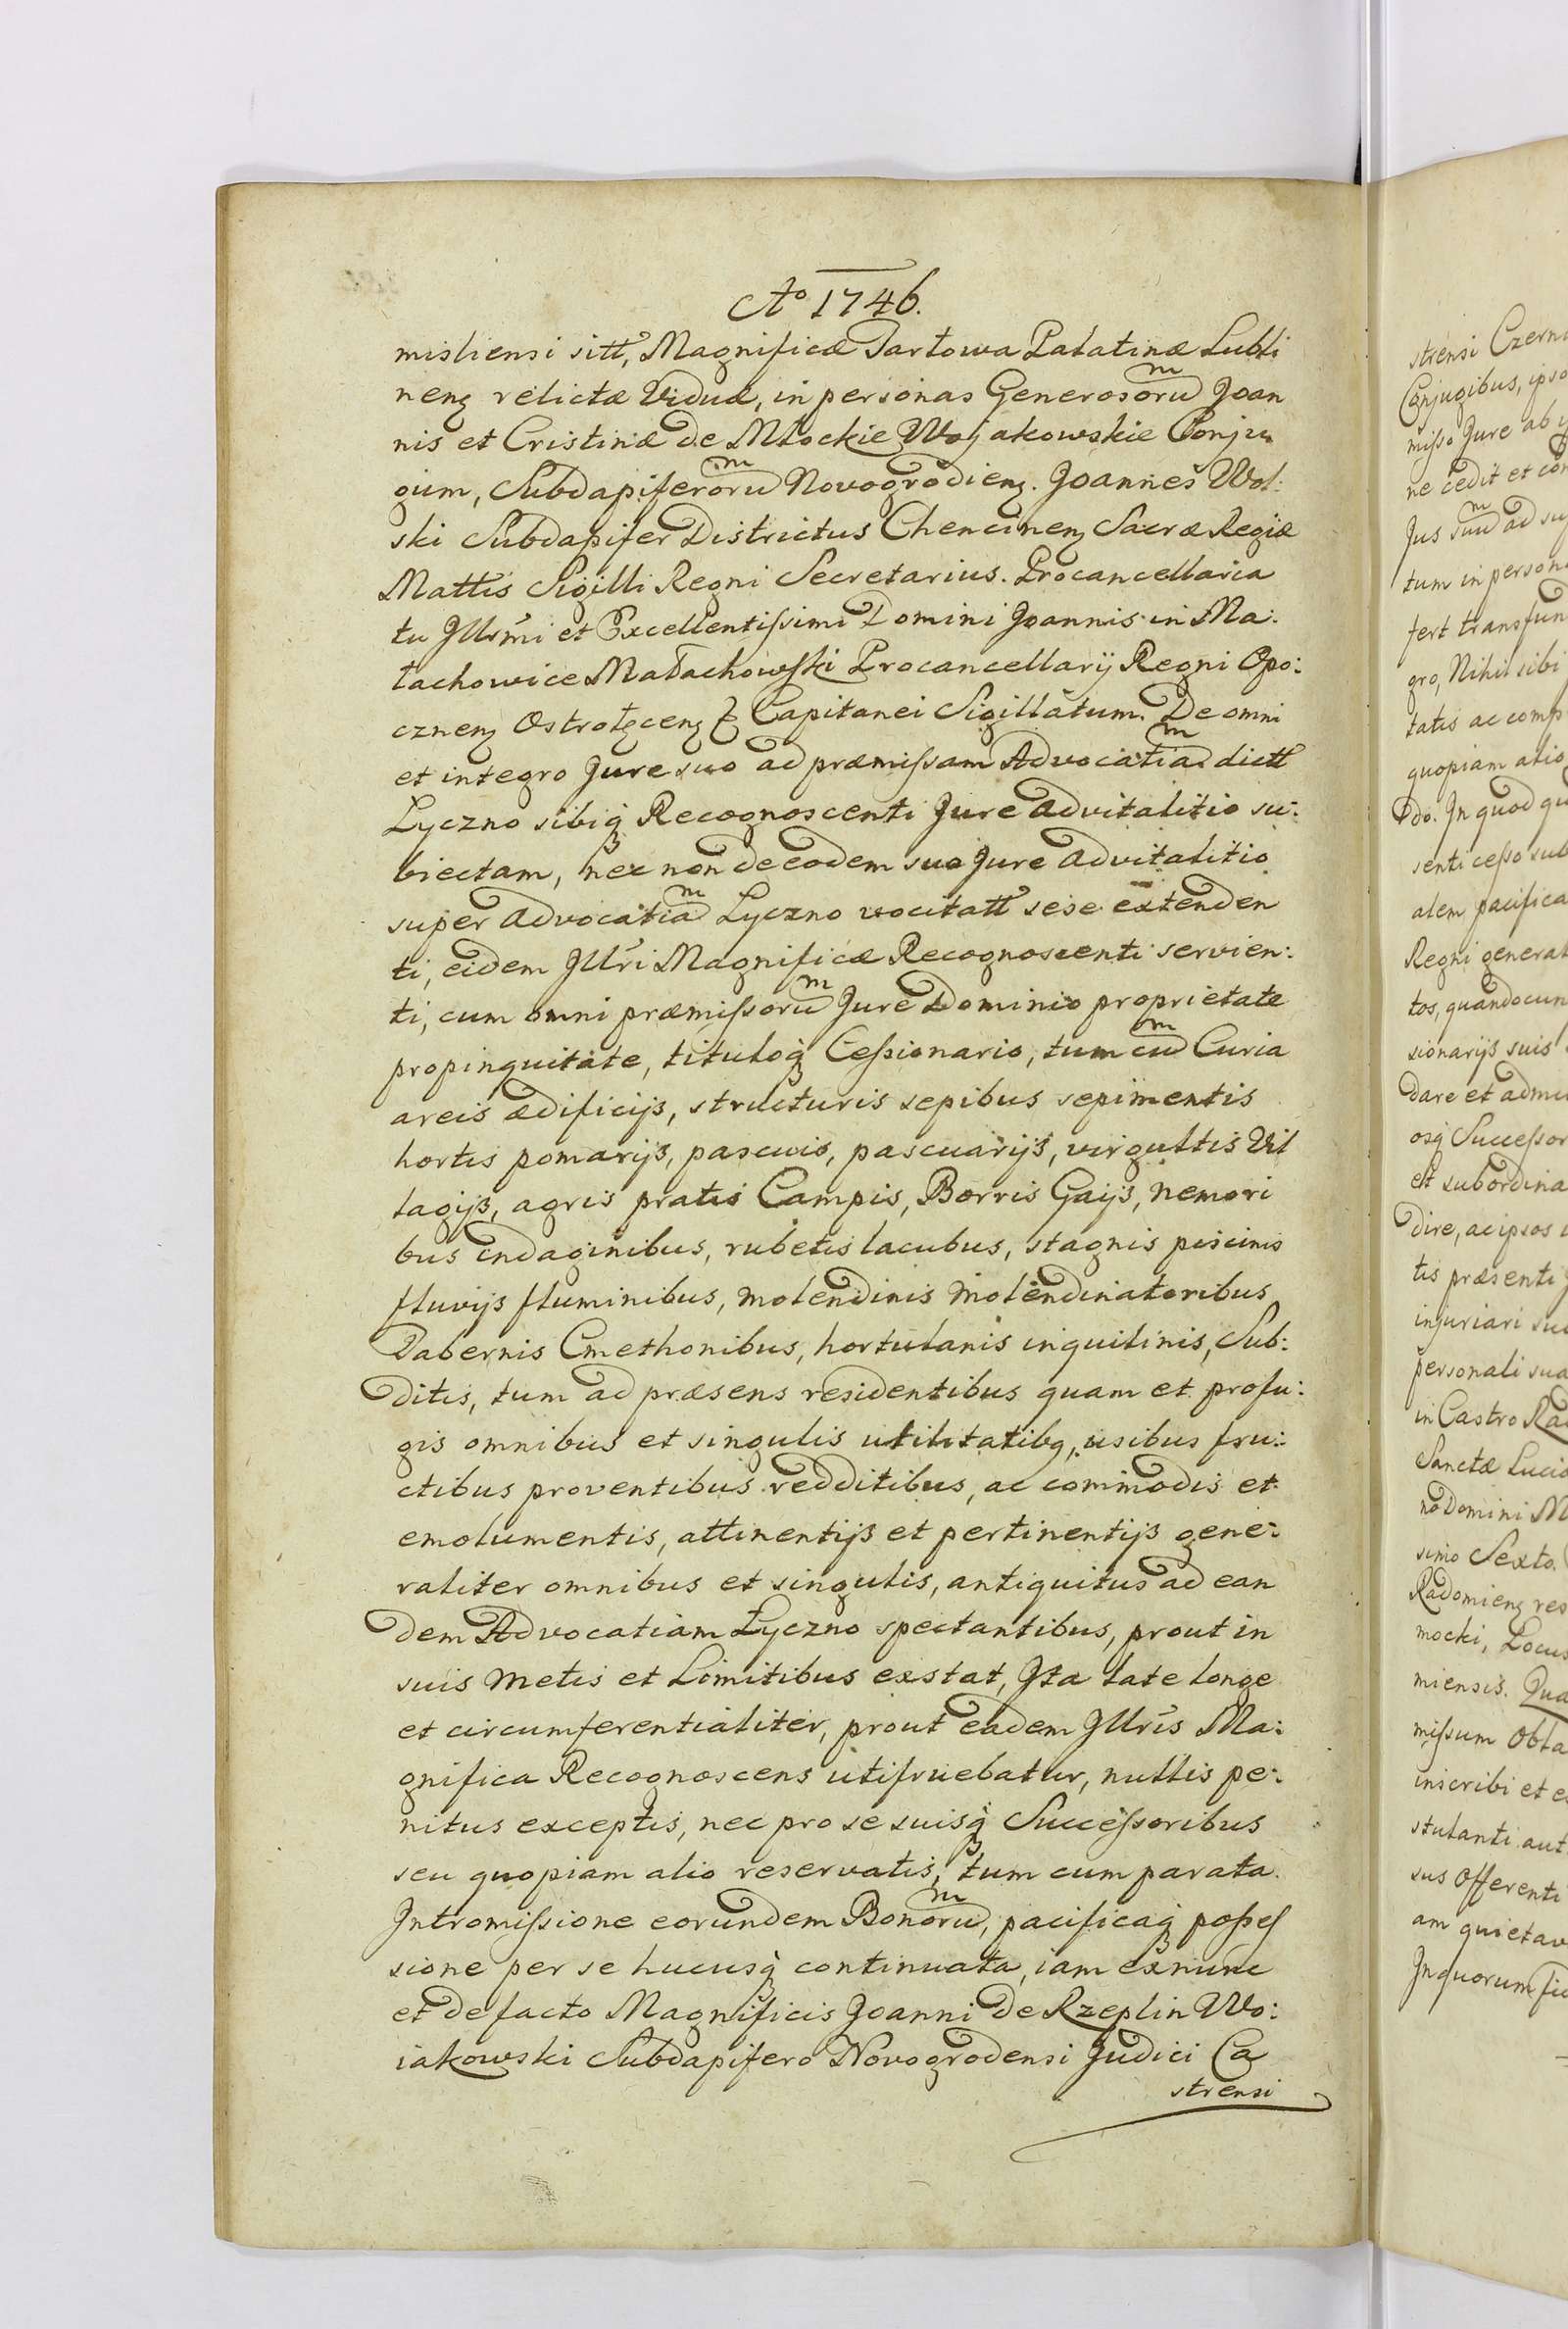 Aº 1746.
misliensi sitt, Magnificæ Tarłowa Palatinæ Lubli
nenʒ relictæ Viduæ, in personas Generosorum Joan
nis et Cristinæ de Młockie Wojakowskie Conju
gum, Subdapiferorum Novogrodienʒ. Joannes Wol:
ski Subdapifer Districtus Chencinenʒ Sacræ Regiæ
Mattis Sigilli Regni Secretarius. Procancellaria
tu Jllrmi et Excellentissimi Domini Joannis in Ma:
łachowice Małachowski Procancellarij Regni Opo:
cznenʒ Ostrołęcenʒ & Capitanei Sigillatum. De omni
et integro Jure suo ad præmissam Advocatiam dictt
Lyczno sibiq̨ Recognoscenti Jure advitalitio su:
biectam, nec non de eodem suo Jure advitalitio
super advocatiam Lyczno vocitatt sese extenden
ti, eidem Jllri Magnificæ Recognoscenti servien:
ti, cum omni præmissorum Jure Dominio proprietate
propinquitate, tituloq̨ Cessionario, tum cum Curia
areis ædificijs, structuris sepibus sepimentis
hortis pomarijs, pascuis, pascuarijs, virgultis Vil
lagijs, agris pratis Campis, Borris Gaijs, nemori
bus indaginibus, rubetis lacubus, stagnis piscinis
fluvijs fluminibus, molendinis molendinatoribus
Tabernis Cmethonibus, hortulanis inquilinis, Sub:
ditis, tum ad præsens residentibus quam et profu:
gis omnibus et singulis utilitatibq, usibus fru:
ctibus proventibus redditibus, ac commodis et
emolumentis, attinentijs et pertinentijs gene:
raliter omnibus et singulis, antiquitus ad ean
dem Advocatiam Łyczno spectantibus, prout in
suis metis et Limitibus exstat, Jta late longe
et circumferentialiter, prout eadem Jllris Ma:
gnifica Recognoscens utifruebatur, nullis pe:
nitus exceptis, nec pro se suisq̨ Successoribus
seu quopiam alio reservatis, tum cum parata
Intromissione eorundem Bonorum, pacificaq̨ posses
sione per se hucusq̨ continuata, iam exnunc
et de facto Magnificis Joanni de Rzeplin Wo:
iakowski Subdapifero Novogrodensi Judici Ca
strensi
strensi Czern
Conjugibus, ipso
misso Jure ab
ne cedit et con
Jus suum ad su
tum in person
fert transfun
gro, Nihil sibi
tatis ac comp
quopiam alio
do. Jn quod qu
senti cesso sub
alem pacifica
Regni general
tos, quandocun
sionarijs suis
dare et admi
osq̨ Successor
et subordina
dire, ac ipsos
tis præsenti
injuriari su
personali sua
in Castro Ra
Sanctæ Lucia
no Domini M
simo Sexto.
Radomienʒ res
mocki, Locus
miensis. Qua
missum Obla
inscribi et e
stulanti aut
sus Offerenti
am quietav
Jn quorum fid